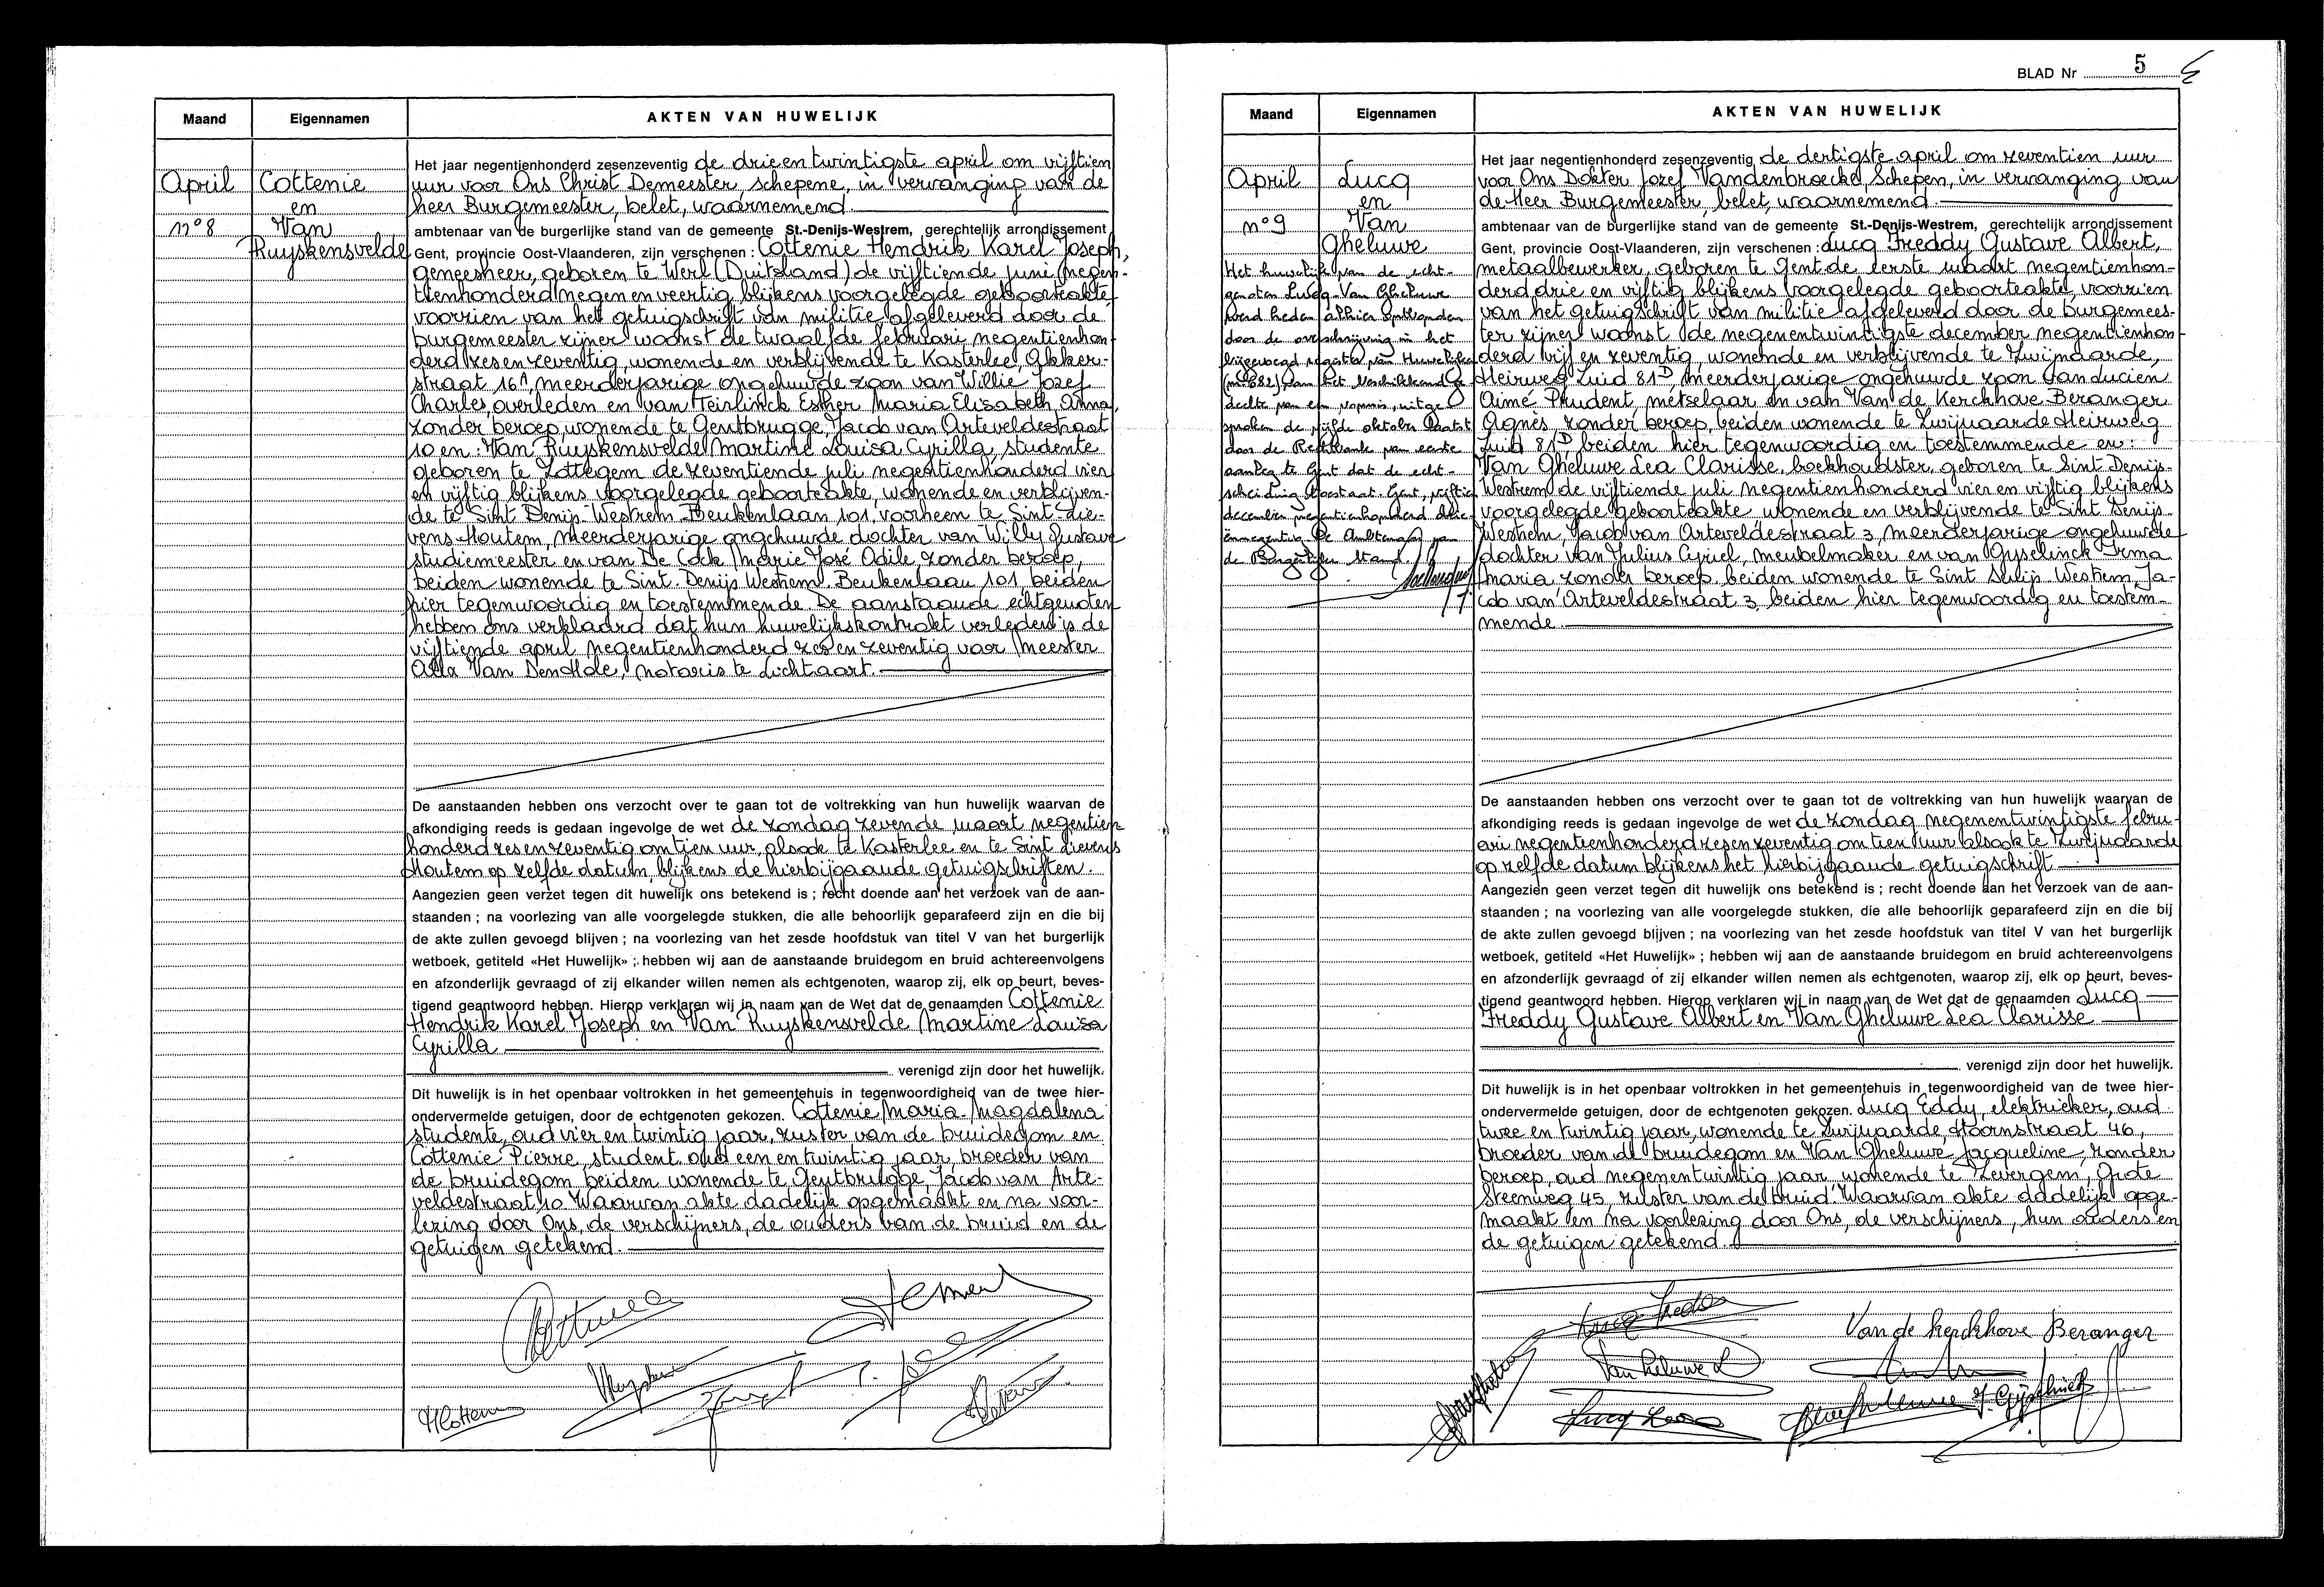 Maand
Eigennamen
AKTEN VAN HUWELIJK
April
Cottenie
en
n° 8
Van
Ruyskensvelde
Het jaar negentienhonderd zesenzeventig de drieentwintigste april om vijftien
uur voor Ons Christ Demeester, schepene, in vervanging van de
heer Burgemeester, belet, waarnemend
ambtenaar van de burgerlijke stand van de gemeente St.-Denijs-Westrem, gerechtelijk arrondissement
Gent, provincie Oost-Vlaanderen, zijn verschenen : Cottenie Hendrik Karel Joseph,
geneesheer, geboren te Werl (Duitsland) de vijftiende juni negen-
tienhonderd negen en veertig blijkens voorgelegde geboorteakte
voorzien van het getuigschrift van militie afgeleverd door de
burgemeester zijner woonst de twaalfde februari negentienhon
derd zes en zeventig, wonende en verblijvende te Kasterlee,
straat 16A, meerderjarige ongehuwde zoon van Willie Jozef
Charles, overleden en van Teirlinck Esther Maria Elisabeth Anna,
zonder beroep, wonende te Gentbrugge, Jacob van Arteveldestraat
10 en : Van Ruyskensvelde Martine Louisa Cyrilla, studente
geboren te Zottegem de zeventiende juli negentienhonderd vier
en vijftig blijkens voorgelegde geboorteakte, wonende en verblijven-
de te Sint Denijs-Westrem Beukenlaan 101, voorheen te Sint-Lie-
vens-Houtem, meerderjarige ongehuwde dochter van Willy Gustave
studiemeester en van De Cock Marie José Odile, zonder beroep,
beiden wonende te Sint-Denijs Westrem Beukenlaan 101 beiden
hier tegenwoordig en toestemmende. De aanstaande echtgenoten
hebben ons verklaard dat hun huwelijkskontrakt verleden is de
vijftiende april negentienhonderd zes en zeventig voor Meester
Van Den notaris te Lichtaart.
De aanstaanden hebben ons verzocht over te gaan tot de voltrekking van hun huwelijk waarvan de
afkondiging reeds is gedaan ingevolge de wet de zondag zevende maart negentien
honderd zes en zeventig om tien uur, alsook te Kasterlee en te Sint Lievens
Houtem op zelfde datum, blijkens de hierbijgaande getuigschriften.
Aangezien geen verzet tegen dit huwelijk ons betekend is ; recht doende aan het verzoek van de aan-
staanden ; na voorlezing van alle voorgelegde stukken, die alle behoorlijk geparafeerd zijn en die bij
de akte zullen gevoegd blijven ; na voorlezing van het zesde hoofdstuk van titel V van het burgerlijk
wetboek, getiteld «Het Huwelijk» ; hebben wij aan de aanstaande bruidegom en bruid achtereenvolgens
en afzonderlijk gevraagd of zij elkander willen nemen als echtgenoten, waarop zij, elk op beurt, beves-
tigend geantwoord hebben. Hierop verklaren wij in naam van de Wet dat de genaamden Cottenie
Hendrik Karel Joseph en Van Ruyskensvelde Martine Louisa
Cyrilla
verenigd zijn door het huwelijk.
Dit huwelijk is in het openbaar voltrokken in het gemeentehuis in tegenwoordigheid van de twee hier-
ondervermelde getuigen, door de echtgenoten gekozen. Cottenie Maria-Magdalena
studente, oud vier en twintig jaar, zuster van de bruidegom en
Cottenie Pierre, student, oud een en twintig jaar, broeder van
de bruidegom beiden wonende te Gentbrugge, Jacob van Arte-
veldestraat 10 Waarvan akte dadelijk opgemaakt en na voor-
lezing door Ons, de verschijners, de ouders van de bruid en de
getuigen getekend.
BLAD Nr 5
Maand
Eigennamen
AKTEN VAN HUWELIJK
April
Lucq
en
n° 9
Van
Gheluwe
Het huwelijk van de echt-
genoten Lucq-Van Gheluwe
werd heden alhier ontbonden
door de overschrijving in het
bijgevoegd register van Huwelijken
(nr 682) van het beschikkend ge
deelte van een vonnis, uitge
sproken de vijfde oktober laatst
door de Rechtbank van eerste
aanleg te Gent dat de echt-
scheiding toestaat. Gent, vijftien
december negentienhonderd drie
ennegentig De Ambtenaar van
de Burgerlijke Stand.
Het jaar negentienhonderd zesenzeventig de dertigste april om zeventien uur
voor Ons Dokter Jozef Vandenbroecke, Schepen, in vervanging van
de Heer Burgemeester, belet, waarnemend.
ambtenaar van de burgerlijke stand van de gemeente St.-Denijs-Westrem, gerechtelijk arrondissement
Gent, provincie Oost-Vlaanderen, zijn verschenen : Lucq Freddy Gustave Albert,
metaalbewerker, geboren te Gent de eerste maart negentienhon-
derd drie en vijftig blijkens voorgelegde geboorteakte, voorzien
van het getuigschrift van militie afgeleverd door de burgemees-
ter zijner woonst de negenentwintigste december negentienhon
derd vijf en zeventig, wonende en verblijvende te Zwijnaarde,
Heirweg Zuid 81D, meerderjarige ongehuwde zoon van Lucien
Aimé Prudent, metselaar en van Van de Kerckhove Beranger
Agnès, zonder beroep, beiden wonende te Zwijnaarde Heirweg
Zuid 81D beiden hier tegenwoordig en toestemmende en :
Van Gheluwe Lea Clarisse, boekhoudster, geboren te Sint Denijs-
Westrem de vijftiende juli negentienhonderd vier en vijftig blijkens
voorgelegde geboorteakte wonende en verblijvende te Sint Denijs-
Westrem, Jacob van Arteveldestraat 3, meerderjarige ongehuwde
dochter van Julius Cyriel, meubelmaker en van Gyselinck Irma
Maria zonder beroep beiden wonende te Sint Denijs-Westrem, Ja-
cob van Arteveldestraat 3, beiden hier tegenwoordig en toestem-
mende.
De aanstaanden hebben ons verzocht over te gaan tot de voltrekking van hun huwelijk waarvan de
afkondiging reeds is gedaan ingevolge de wet de zondag negenentwintigste febru-
ari negentienhonderd zes en zeventig om tien uur alsook te Zwijnaarde
op zelfde datum blijkens het hierbijgaande getuigschrift
Aangezien geen verzet tegen dit huwelijk ons betekend is ; recht doende aan het verzoek van de aan-
staanden ; na voorlezing van alle voorgelegde stukken, die alle behoorlijk geparafeerd zijn en die bij
de akte zullen gevoegd blijven ; na voorlezing van het zesde hoofdstuk van titel V van het burgerlijk
wetboek, getiteld «Het Huwelijk» ; hebben wij aan de aanstaande bruidegom en bruid achtereenvolgens
en afzonderlijk gevraagd of zij elkander willen nemen als echtgenoten, waarop zij, elk op beurt, beves-
tigend geantwoord hebben. Hierop verklaren wij in naam van de Wet dat de genaamden Lucq
Freddy Gustave Albert en Van Gheluwe Lea Clarisse
verenigd zijn door het huwelijk.
Dit huwelijk is in het openbaar voltrokken in het gemeentehuis in tegenwoordigheid van de twee hier-
ondervermelde getuigen, door de echtgenoten gekozen. Lucq Eddy, elektrieker, oud
twee en twintig jaar, wonende te Zwijnaarde, Hoornstraat 46,
broeder van de bruidegom en Van Gheluwe Jacqueline, zonder
beroep, oud negenentwintig jaar, wonende te Zevergem, Grote
Steenweg 45, zuster van de bruid. Waarvan akte dadelijk opge-
maakt en na voorlezing door Ons, de verschijners, hun ouders en
de getuigen getekend.
Van de Kerckhove Beranger